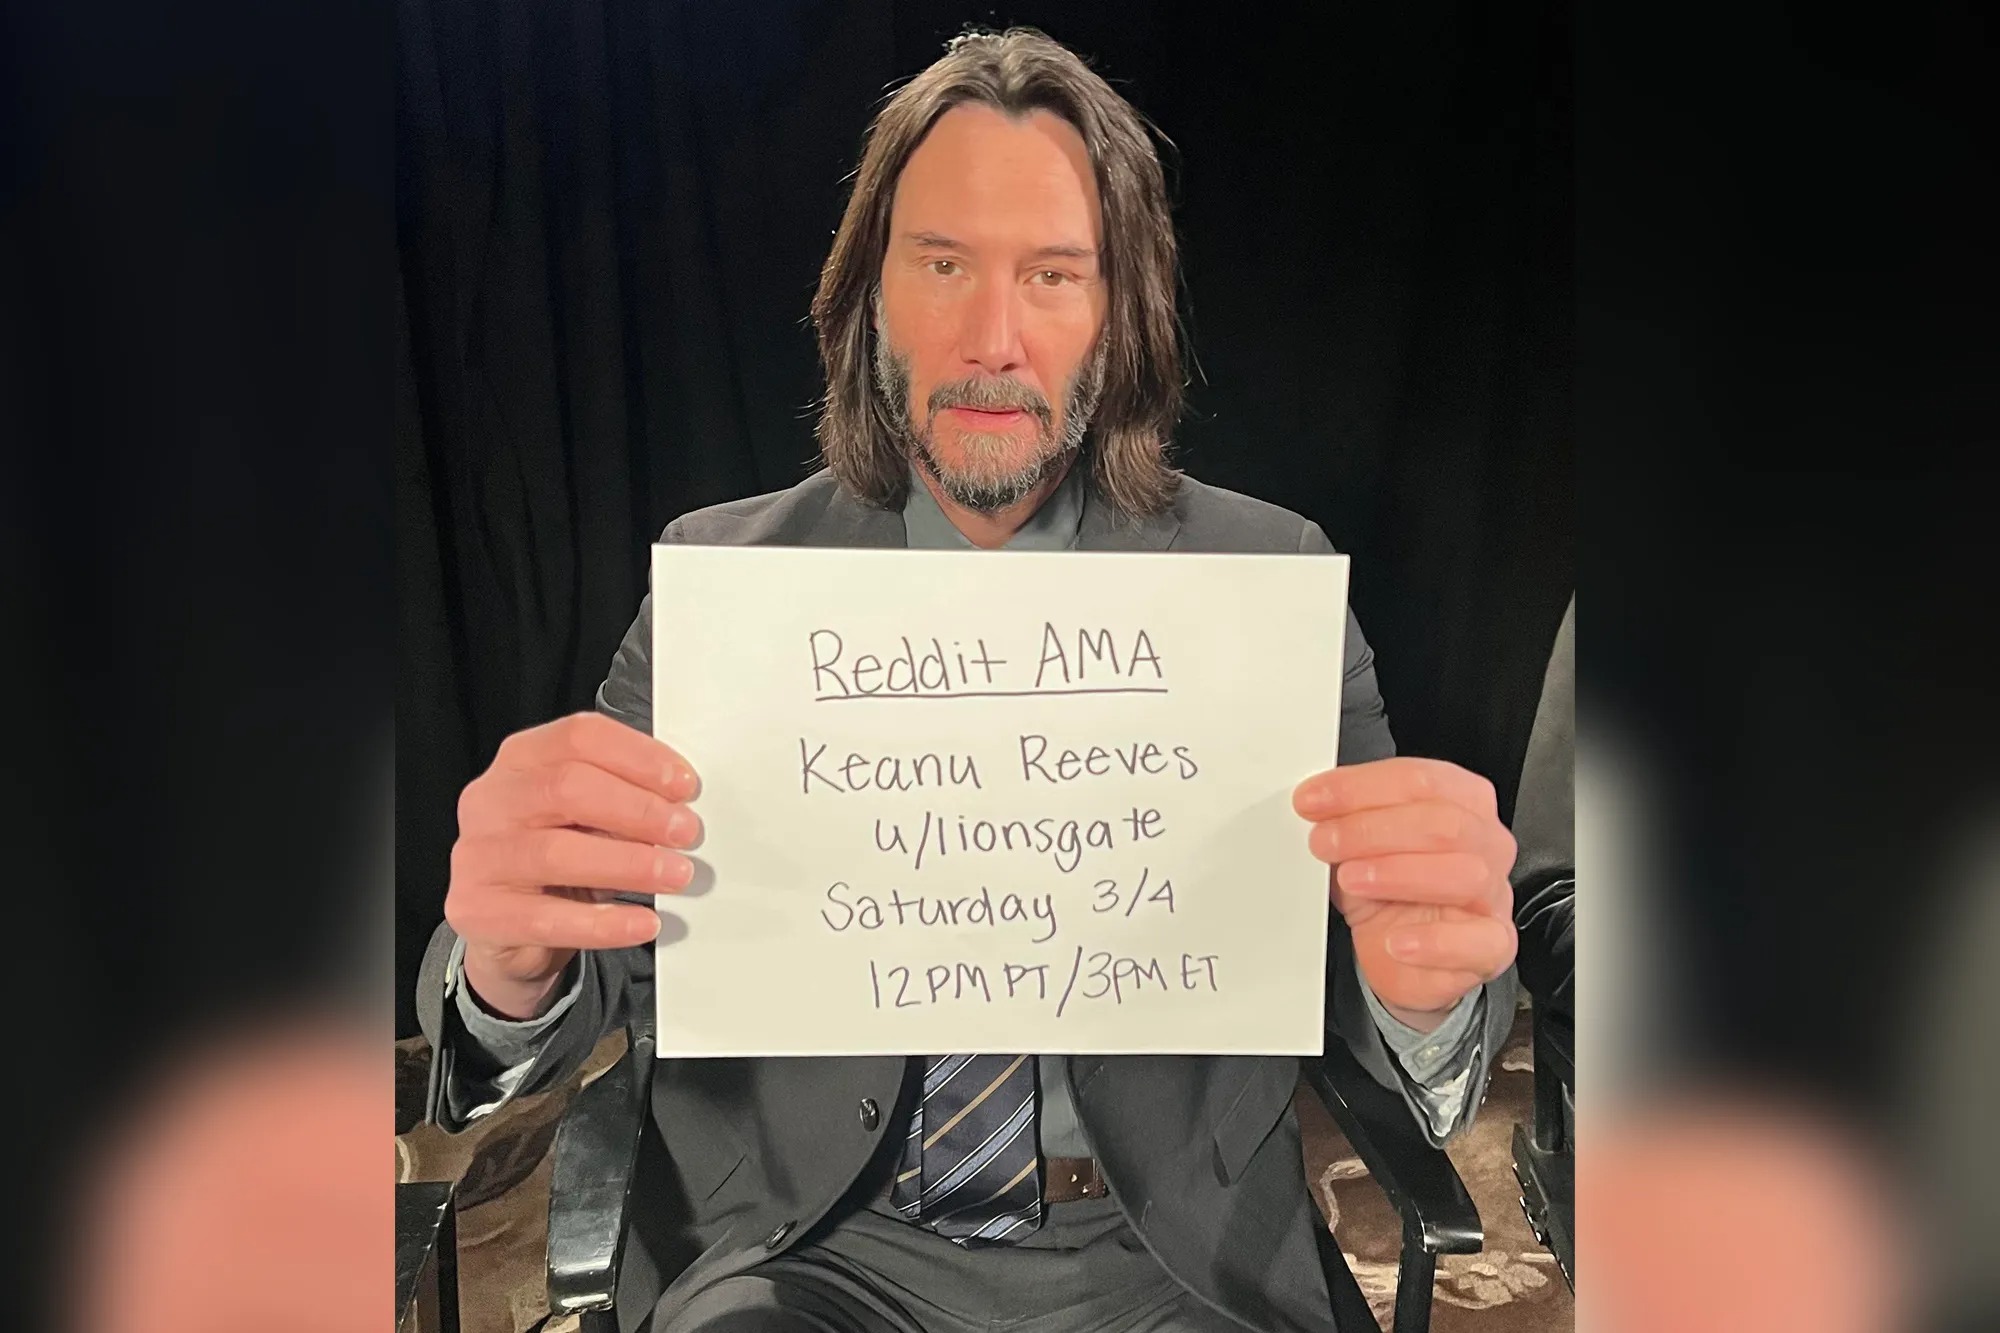 Reddit AMA
Keanu Reeves
u/lionsgate
Saturday 3/4
12PM PT/3PM ET